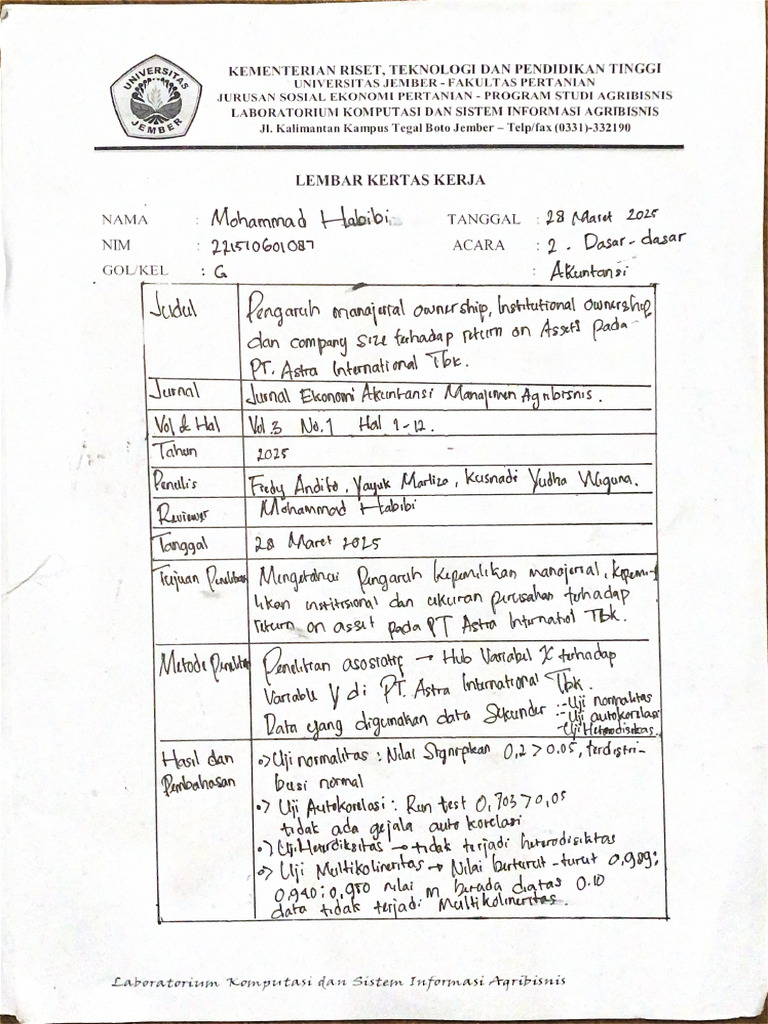 UNIVERSITAS
JEMBER
KEMENTERIAN RISET, TEKNOLOGI DAN PENDIDIKAN TINGGI
UNIVERSITAS JEMBER - FAKULTAS PERTANIAN
JURUSAN SOSIAL EKONOMI PERTANIAN - PROGRAM STUDI AGRIBISNIS
LABORATORIUM KOMPUTASI DAN SISTEM INFORMASI AGRIBISNIS
Jl. Kalimantan Kampus Tegal Boto Jember – Telp/fax (0331)-332190
LEMBAR KERTAS KERJA
NAMA : Mohammad Habibi TANGGAL : 28 Maret 2025
NIM : 221510601087 ACARA : 2. Dasar-dasar
GOL/KEL : G : Akuntansi
Judul Pengaruh manajerial ownership, Institutional ownership
dan company size terhadap return on Assets pada
PT. Astra International Tbk.
Jurnal Jurnal Ekonomi Akuntansi Manajemen Agribisnis.
Vol & Hal Vol 3 No. 1 Hal 1-12.
Tahun 2025
Penulis Fredy Andito, Yayuk Marliza, Kusnadi Yudha Wiguna.
Reviewer Mohammad Habibi
Tanggal 28 Maret 2025
Tujuan Penelitian Mengetahui Pengaruh kepemilikan manajerial, kepemi-
likan institisional dan ukuran perusahan terhadap
return on asset pada PT Astra Internatiol Tbk.
Metode Penelitian Penelitian asosiatif → Hub Variabel X terhadap
Variable Y di PT. Astra International Tbk.
Data yang digunakan data Sekunder :- Uji normalitas
- Uji autokorelasi
- Uji Heterodisikas.
Hasil dan •> Uji normalitas : Nilai Signifikan 0,2 > 0.05, terdistri-
Pembahasan busi normal
•> Uji Autokorelasi : Run test 0,703 > 0,05
tidak ada gejala auto korelasi
•> Uji Heterdiksitas → tidak terjadi heterodisiktas
•> Uji Multikolineritas → Nilai berturut-turut 0,989;
0,940; 0,950 nilai m berada diatas 0.10
data tidak terjadi Multikolineritas.
Laboratorium Komputasi dan Sistem Informasi Agribisnis